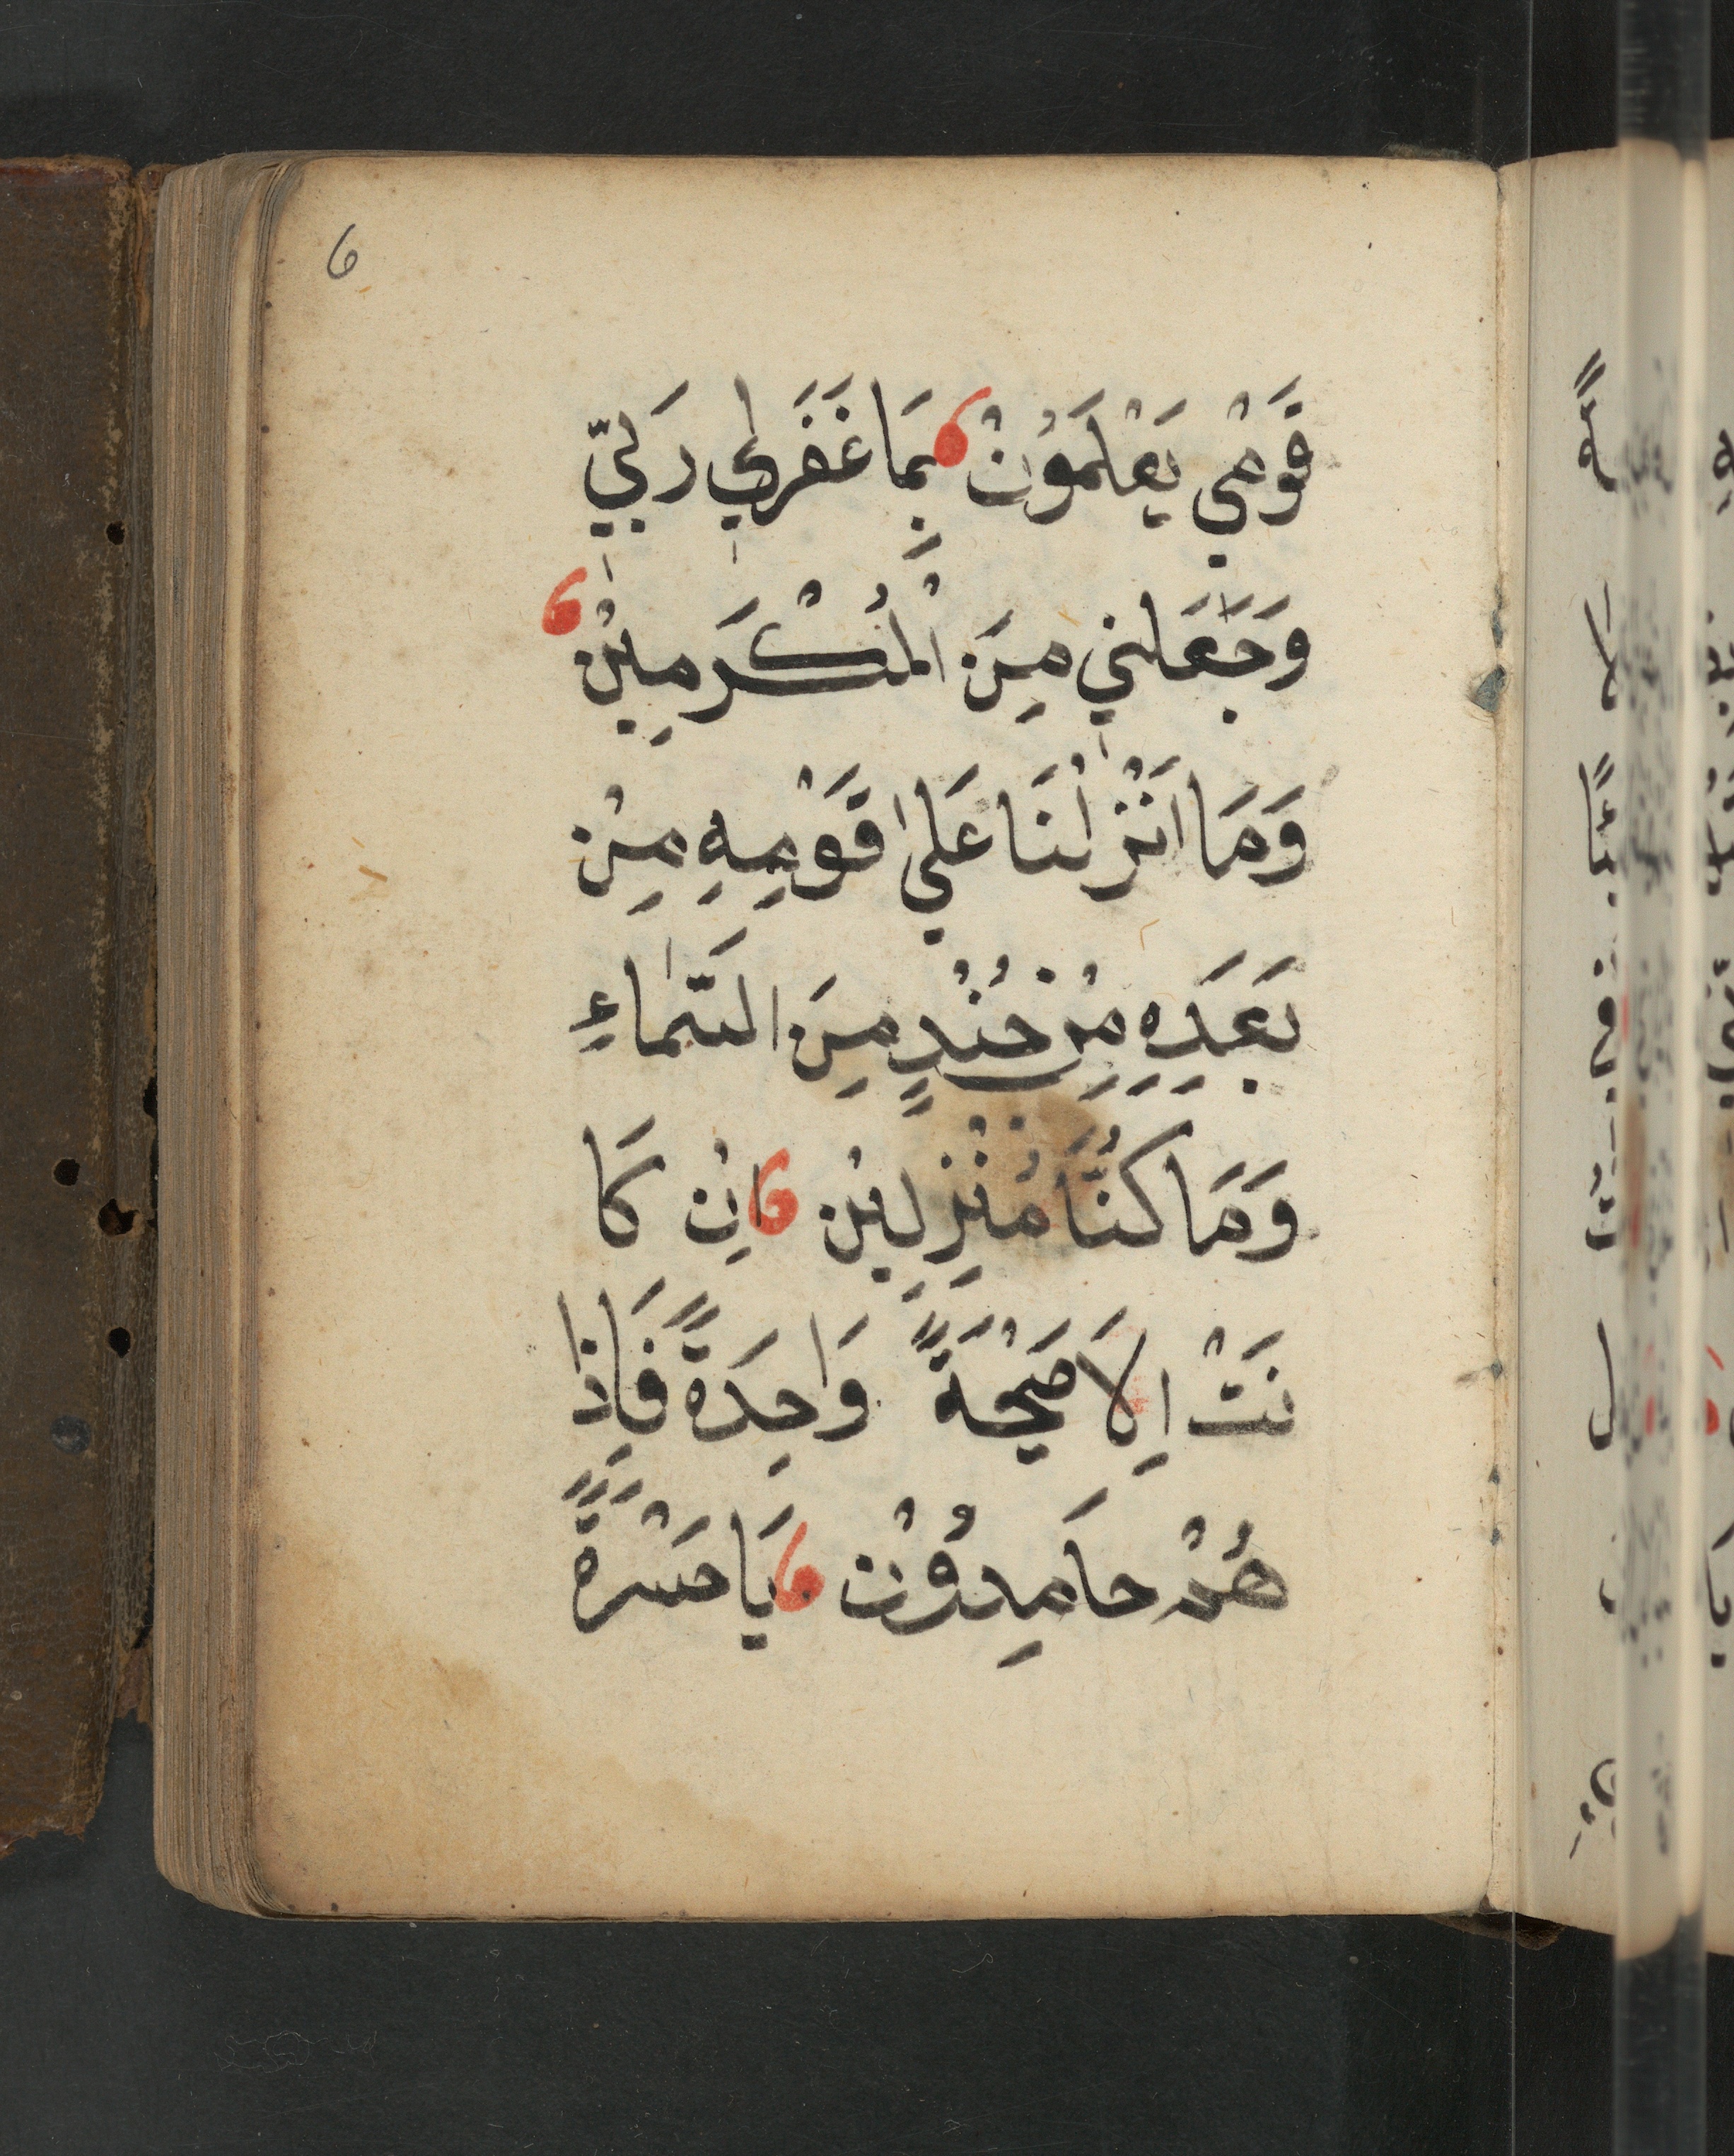 6
قَوْمْي يَعْلَمَوُنْ بِمَا غَفَرَلِي رَبّيِ
وَجَعَلَنيِ مِنَ الْمُكْرَمِينْ
وَمَا اَنْزَلْنَا عَليَ اقَوْمِهِ مِنْ
بَعَدِهِ مِنْ جُنْدٍ مِنَ السَّمَاءِ
وَمَا كُنَّا مُنْزِلِينْ اِنْ كَا
نَتْ اِلاَ صَيْحَةً وَاحِدَةً فَاِذَا
هُمْ حاَمِدُوْنْ يَا حَسْرَةً